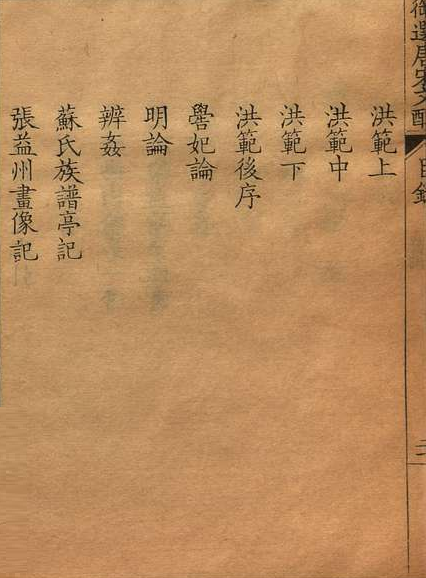 御選唐宋文醇
目錄
洪範上
洪範中
洪範下
洪範後序
嚳妃論
明論
辨姦
蘇氏族譜亭記
張益州畫像記